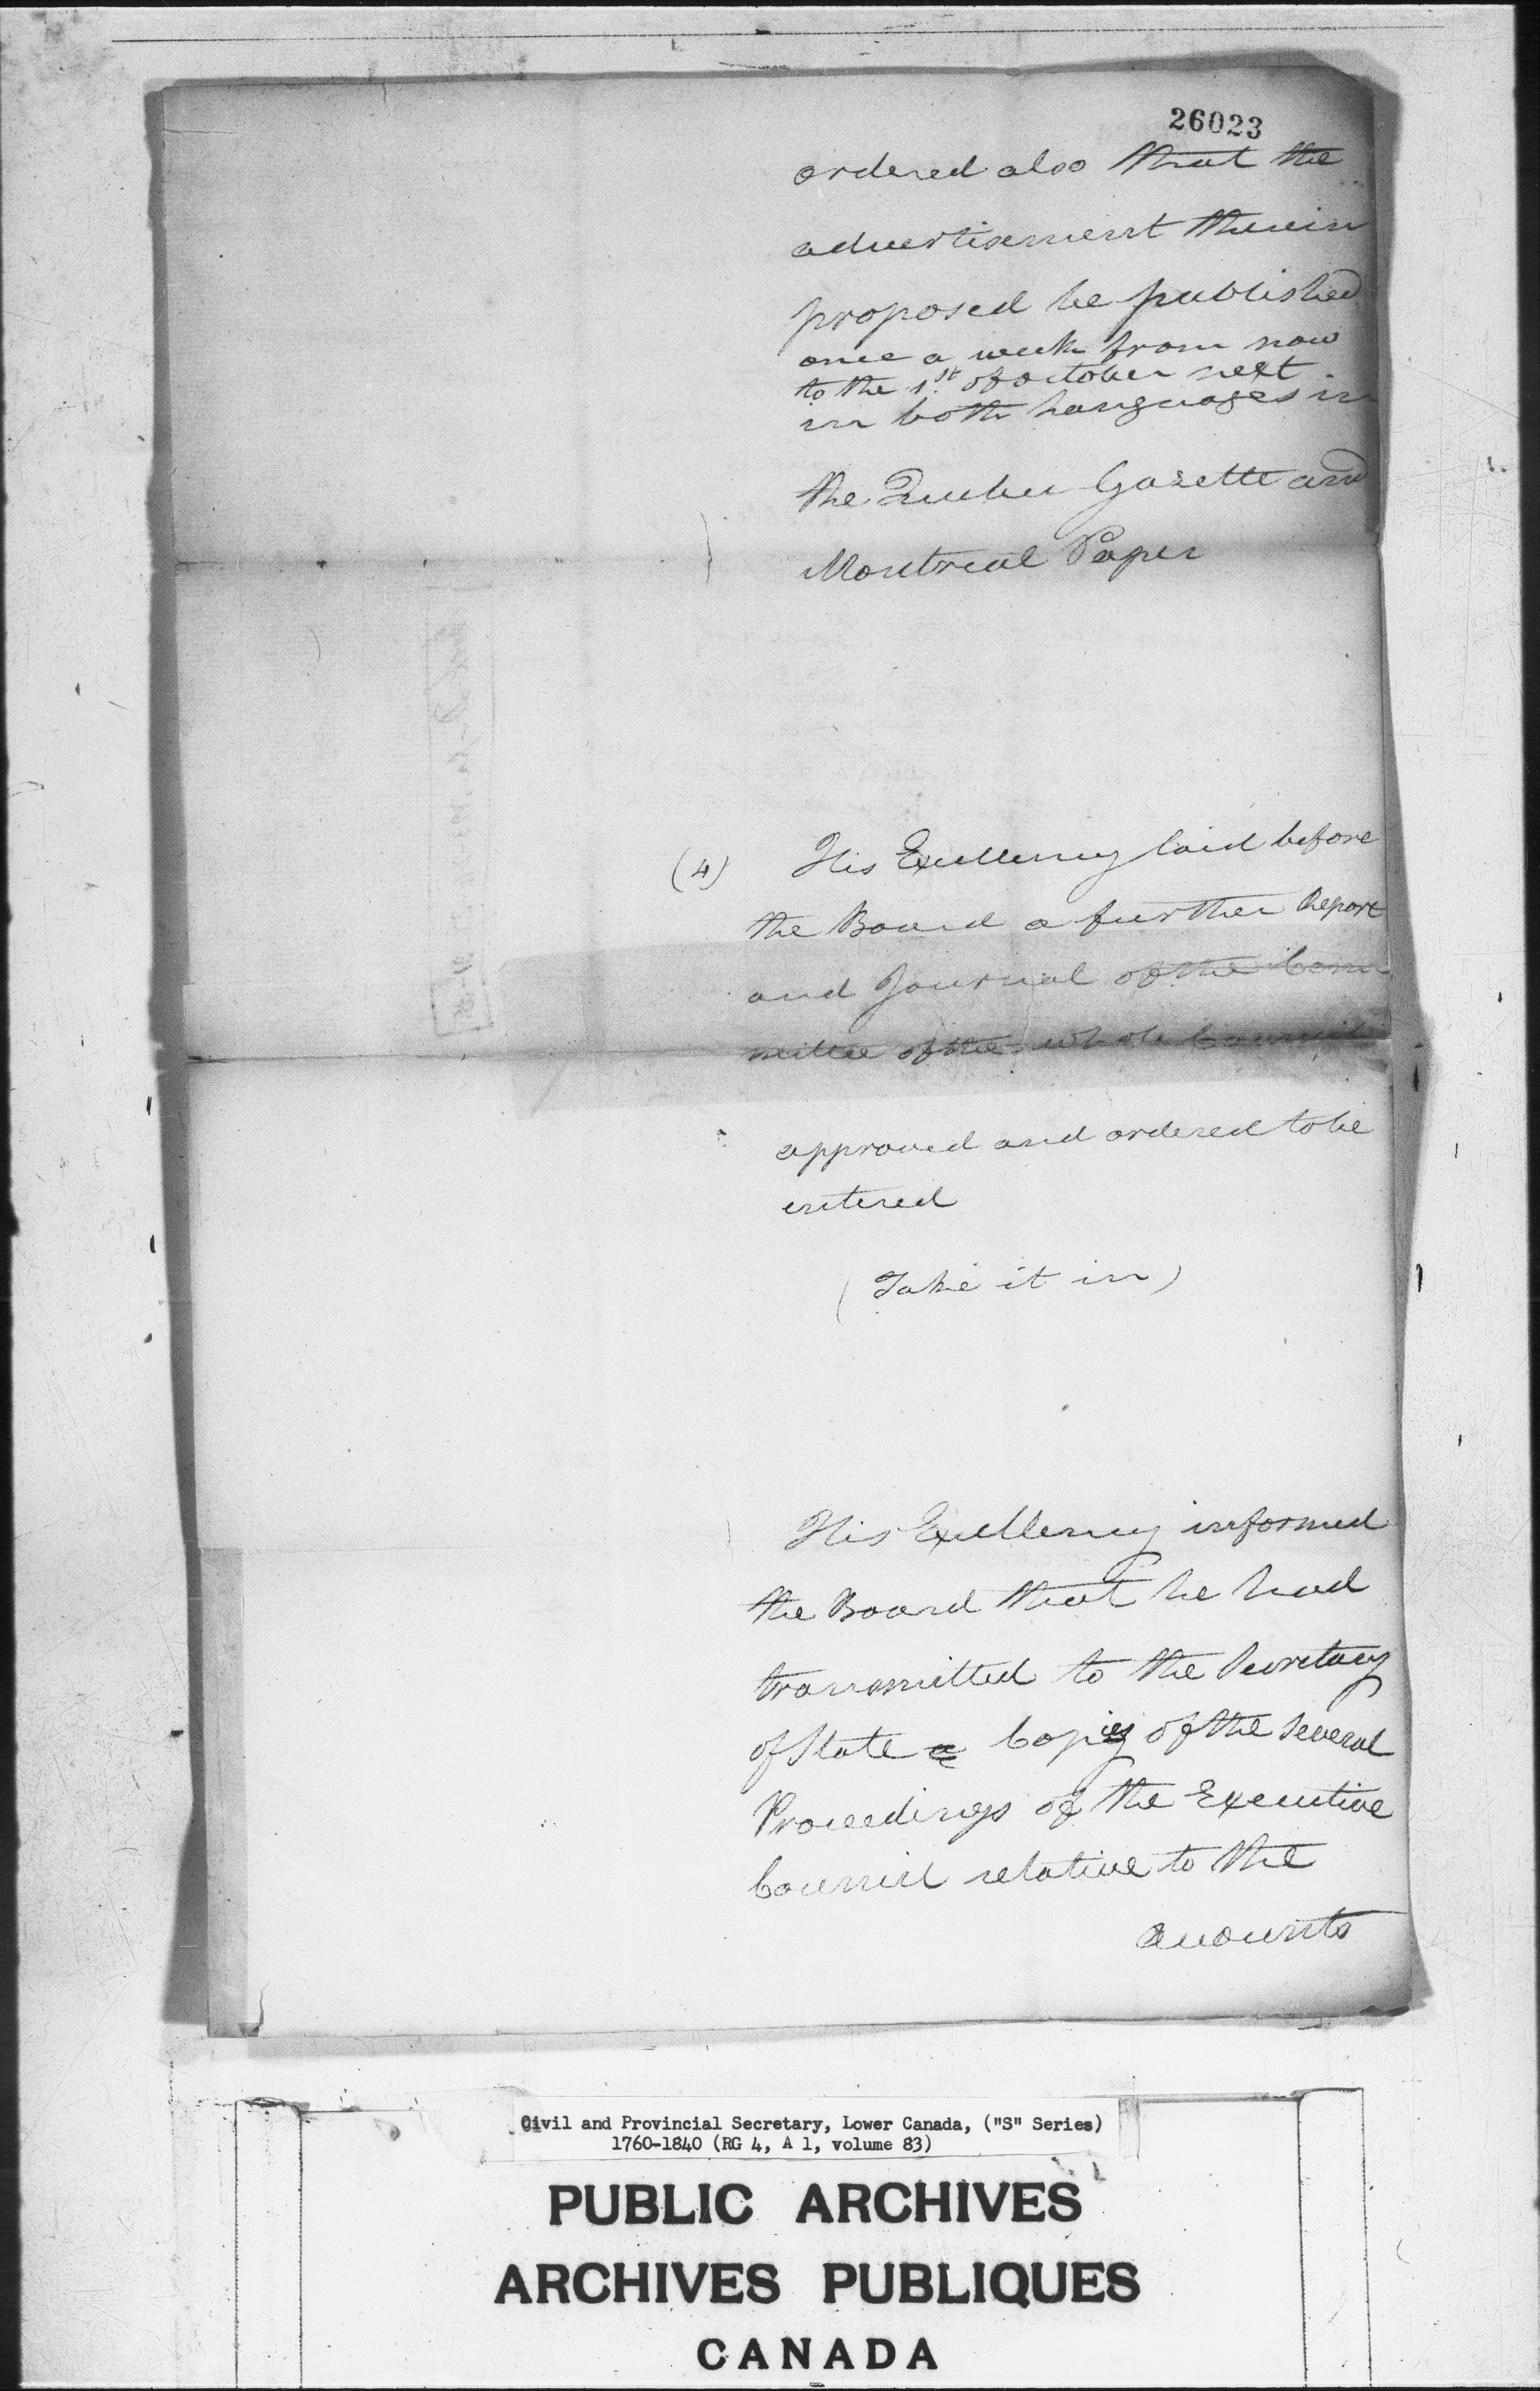 26023
ordered also that the
advertisement therein
proposed be published
once a week from now
to the 1st of October next
in both Languages in
the Quebec Gazette and
Montreal Paper
(4) His Excellency laid before
the Board a further Report
and Journal of the Com
mittee of the whole Council
approved and ordered to be
entered
(Take it in)
His Excellency informed
the Board that he had
transmitted to the Secretary
of State a Copies of the several
Proceedings of the Executive
Council relative to the
accounts
Civil and Provincial Secretary, Lower Canada, ("S" Series)
1760-1840 (RG 4, A 1, volume 83)
PUBLIC ARCHIVES
ARCHIVES PUBLIQUES
CANADA